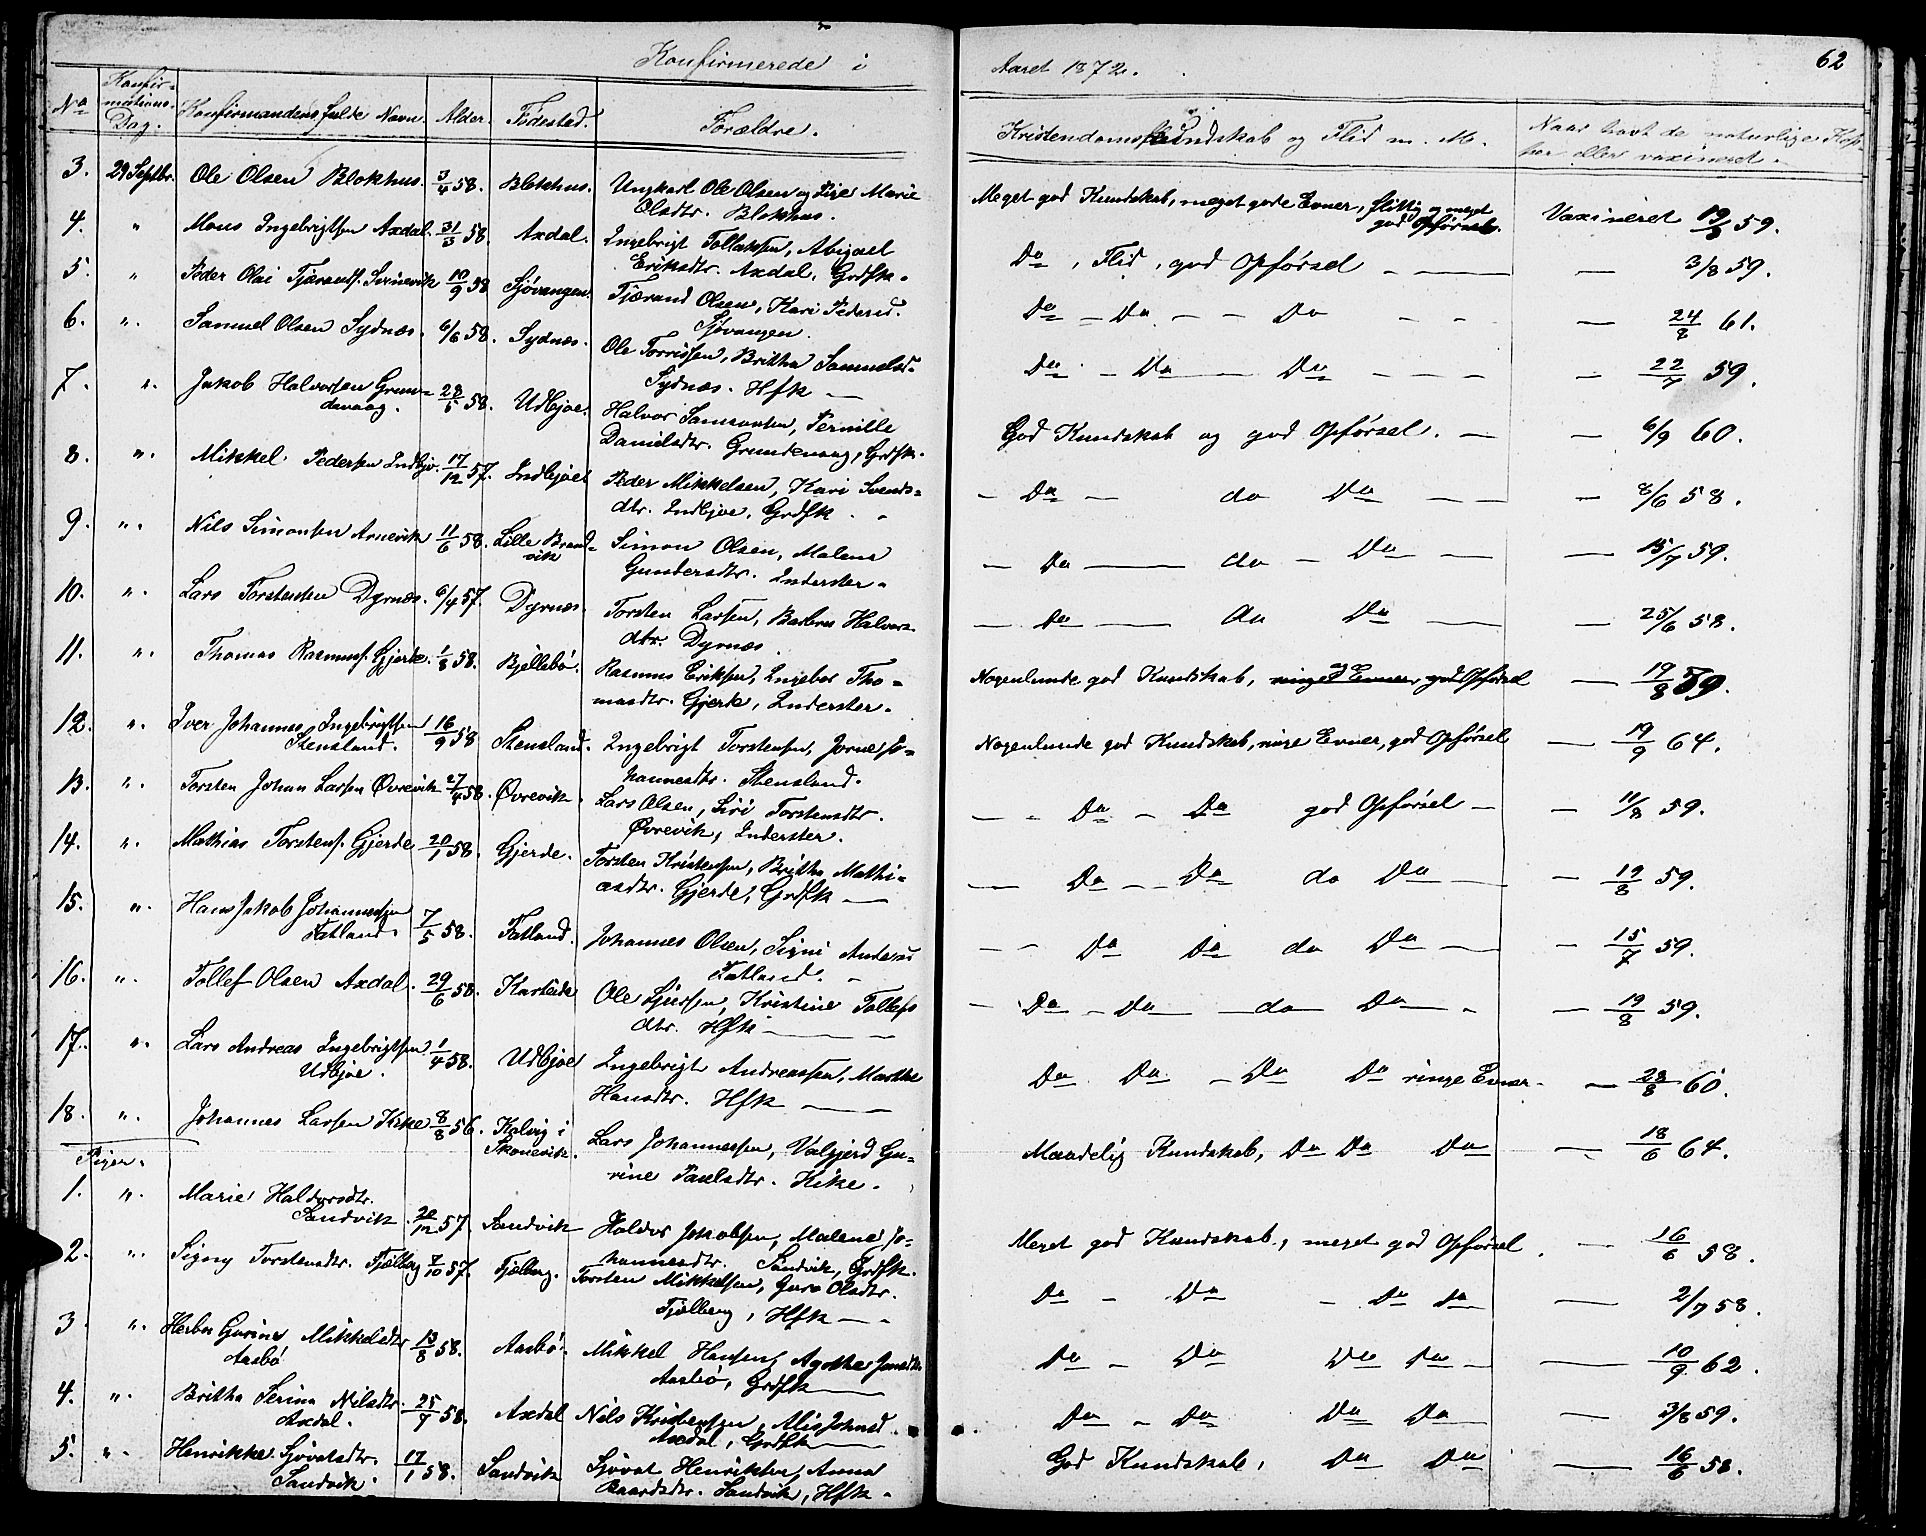 Konfirmerede i
Aaret 1872.
62
No
Konfir-
mations-
Dag.
Konfirmandens fulde Navn.
Alder.
Födested.
Forældre.
Kristendomskundskab og Flid m. M.
Naar havt de naturlige Kop-
per eller vaxineret.
3. 29 Septbr. Ole Olsen Blokhus. 3/4 58. Blokhus. Ungkarl Ole Olsen og Pige Marie
Olsdtr. Blokhus.
Meget god Kundskab, meget gode Evner, flittig og meget
god Opförsel.
Vaxineret 19/8 59.
4. " Mons Ingebrigtsen Axdal. 31/3 58. Axdal. Ingebrigt Tollaksen, Abigael
Eriksdtr. Axdal, Grdsk.
Do, Flid, god Opförsel — — 3/8 59.
5. " Peder Olai Tjærands. Svinevik 10/9 58 Sjövangen. Tjærand Olsen, Kari Pedersd.
Sjövangen.
Do - Do - - Do - - — 24/8 61.
6. " Samuel Olsen Sydnæs. 6/6 58. Sydnæs. Ole Torrissen, Britha Samuelsd.
Sydnæs. Hfk —
Do - Do — Do - - - - 22/7 59.
7. " Jakob Halvorsen Grun-
devaag. 28/5 58. Udbjoe. Halvor Samsonsen, Pernille
Danielsdtr. Grundevaag, Grdsk.
God Kundskab og god Opförsel. — - 6/9 60.
8. " Mikkel Pedersen Indbjo. 17/12 57. Indbjoe Peder Mikkelsen, Kari Svends-
dtr. Indbjoe, Grdsk.
- Do — do Do — — - 8/6 58.
9. " Nils Simonsen Arnevik 11/6 58. Lille Brand-
vik Simon Olsen, Malene
Gundersdtr. Inderster.
— Do — do - Do — — 15/7 59.
10. " Lars Torstensen Dyrnæs. 6/4 57. Dyrnæs. Torsten Larsen, Barbru Halvors-
dtr. Dyrnæs.
— Do — do Do — — 25/6 58.
11. " Thomas Rasmuss. Gjerde. 1/8 58. Bjellebö. Rasmus Eriksen, Ingebor Tho-
masdtr. Gjerde, Inderster.
Nogenlunde god Kundskab, ringe Evner, god Opförsel — 19/8 59.
12. " Iver Johannes Ingebrigtsen
Stensland. 16/9 58 Stensland. Ingebrigt Torstensen, Jorne Jo-
hannesdtr. Stensland.
Nogenlunde god Kundskab, ringe Evner, god Opförsel — 19/9 64.
13. " Torsten Johan Larsen Øvrevik 27/4 58. Øvrevik. Lars Olsen, Siri Torstensdtr.
Øvrevik, Inderster.
— - Do - Do god Opförsel — — 11/8 59.
14. " Mathias Torstens. Gjerde 20/1 58. Gjerde. Torsten Kristensen, Britha Mathi-
asdtr. Gjerde, Grdsk —
— Do - Do do Do — - 19/8 59.
15. " Hans Jakob Johannessen
Fatland. 7/5 58. Fatland. Johannes Olsen, Signi Andersd
Fatland.
- - Do Do do Do — - 15/7 59.
16. " Tollef Olsen Axdal. 29/6 58. Ole Sjursen, Kristine Tollefs
dtr. Hfk —
- Do - Do — do — Do — - — 19/8 59.
17. " Lars Andreas Ingebrigtsen
Udbjoe. 1/4 58. Udbjoe Ingebrigt Andreassen, Marthe
Hansdtr. Hfk —
Do Do - Do Do ringe Evner. — 28/8 60.
18. " Johannes Larsen Kike 8/8 56. Kalvig i
Skonevik. Lars Johannessen, Valgjerd Gu-
rine Paulsdtr. Kike.
Maadelig Kundskab, Do Do Do — 18/6 64.
Piger.
1. " Marie Haldorsdtr.
Sandvik. 20/12 57. Sandvik Haldor Jakobsen, Malene Jo-
hannesdtr. Sandvik, Grdsk.
Meget god Kundskab, meget god Opförsel. — 16/6 58.
2. " Signy Torstensdtr. Fjelberg 7/10 57. Fjelberg. Torsten Mikkelsen, Guro Olsdtr.
Fjelberg, Hfk —
Do - Do - Do Do — 2/7 58.
3. " Herbor Gurine Mikkelsdtr
Aasbö 13/8 58. Aasbö. Mikkel Hansen, Agathe Jonsdtr
Aasbö, Grdsk —
Do - Do Do Do — — 10/9 62.
4. " Britha Serina Nilsdtr
Axdal. 25/7 58. Axdal Nils Kristensen, Alis Johnsd.
Axdal, Grdsk —
Do - Do Do Do — 3/8 59.
5. " Henrikke Sjövatsdtr.
Sandvik. 17/1 58. Sandvik Sjövat Henriksen, Anna
Baardsdtr. Sandvik, Hfk.
God Kundskab, Do Do — 16/6 58.